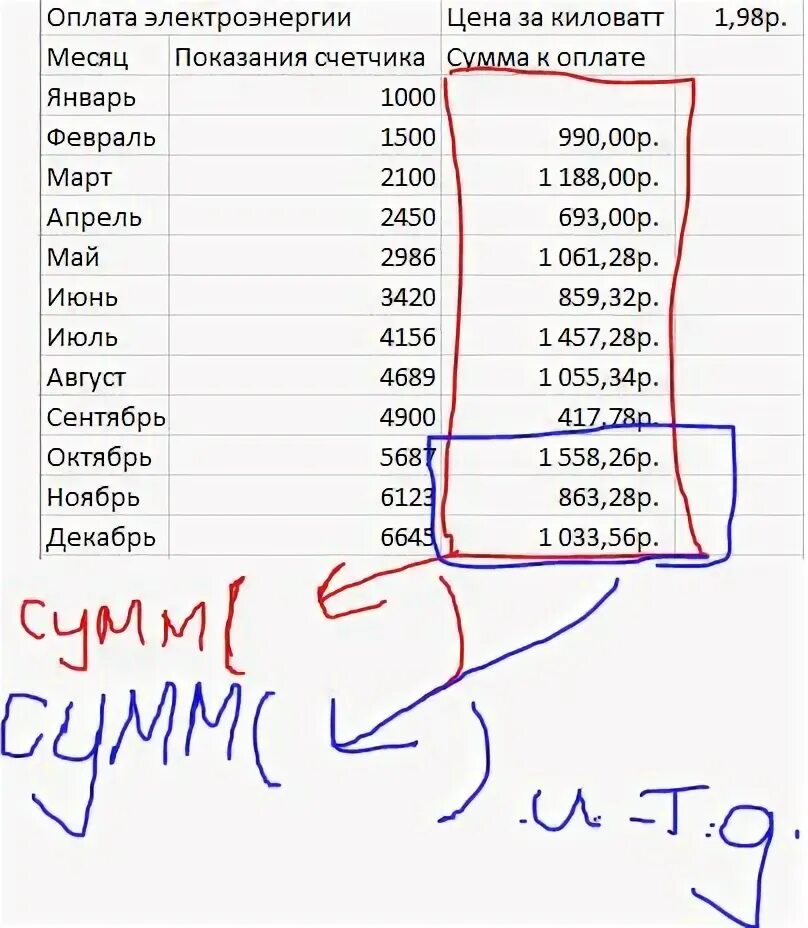 Оплата электроэнергии Цена за киловатт 1,98р.
Месяц Показания счетчика Сумма к оплате
Январь 1000
Февраль 1500 990,00р.
Март 2100 1 188,00р.
Апрель 2450 693,00р.
Май 2986 1 061,28р.
Июнь 3420 859,32р.
Июль 4156 1 457,28р.
Август 4689 1 055,34р.
Сентябрь 4900 417,78р.
Октябрь 5687 1 558,26р.
Ноябрь 6123 863,28р.
Декабрь 6645 1 033,56р.
сумм( )
сумм( )
.и.-т.д.